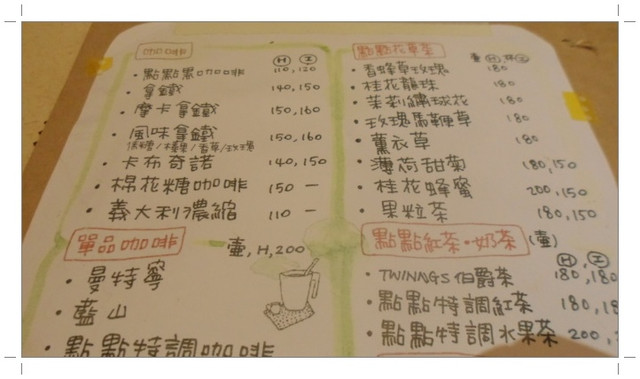 咖啡 H I
・點點黑咖啡 110,120
・拿鐵 140,150
・摩卡拿鐵 150,160
・風味拿鐵 150,160
焦糖/榛果/香草/玫瑰
・卡布奇諾 140,150
・棉花糖咖啡 150 —
・義大利濃縮 110 —
單品咖啡 壺,H,200
・曼特寧
・藍山
・點點特調咖啡
點點花草茶 壺 H,杯I
・香蜂草玫瑰 180
・桂花龍珠 180
・茉莉繡球花 180
・玫瑰馬鞭草 180
・薰衣草 180
・薄荷甜菊 180,150
・桂花蜂蜜 200,150
・果粒茶 180,150
點點紅茶・奶茶 (壺)
H,I
・TWINNGS伯爵茶 180,180
・點點特調紅茶 180,18
・點點特調水果茶 200,